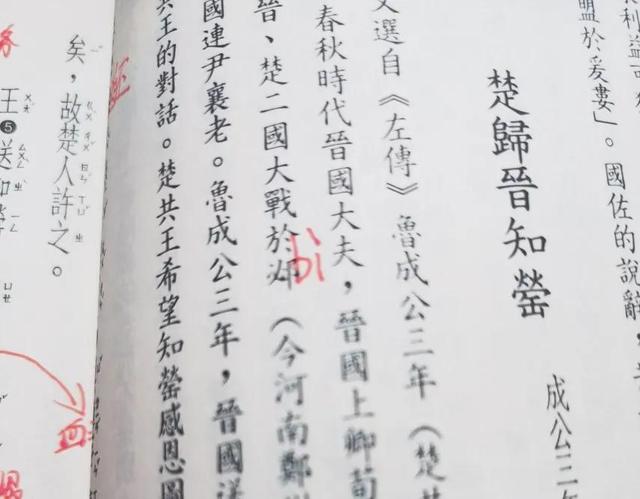 利益
盟於爰婁」。國佐的說辭，
楚歸晉知罃
成公三
文選自《左傳》魯成公三年（楚共
春秋時代晉國大夫，晉國上卿荀
晉、楚二國大戰於邲（今河南鄭州
國連尹襄老。魯成公三年，晉國送
共王的對話。楚共王希望知罃感恩圖
矣，故楚人許之。
王❺送知罃